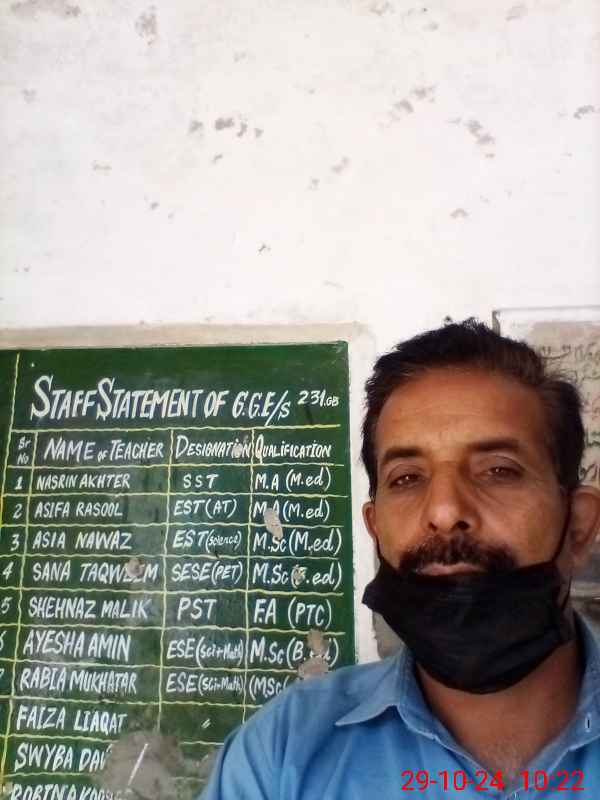 STAFF STATEMENT OF G.G.E/S 231.GB
Sr No NAME OF TEACHER DESIGNATION QUALIFICATION
1 NASRIN AKHTER SST M.A (M.ed)
2 ASIFA RASOOL EST (AT) M.A (M.ed)
3 ASIA NAWAZ EST (Science) M.Sc (M.ed)
4 SANA TAQWEEM SESE (PET) M.Sc (B.ed)
5 SHEHNAZ MALIK PST F.A (PTC)
6 AYESHA AMIN ESE (Sci+Math) M.Sc (B.ed)
7 RABIA MUKHATAR ESE (Sci+Math) (MSc
FAIZA LIAQAT
SWYBA
29-10-24 10:22